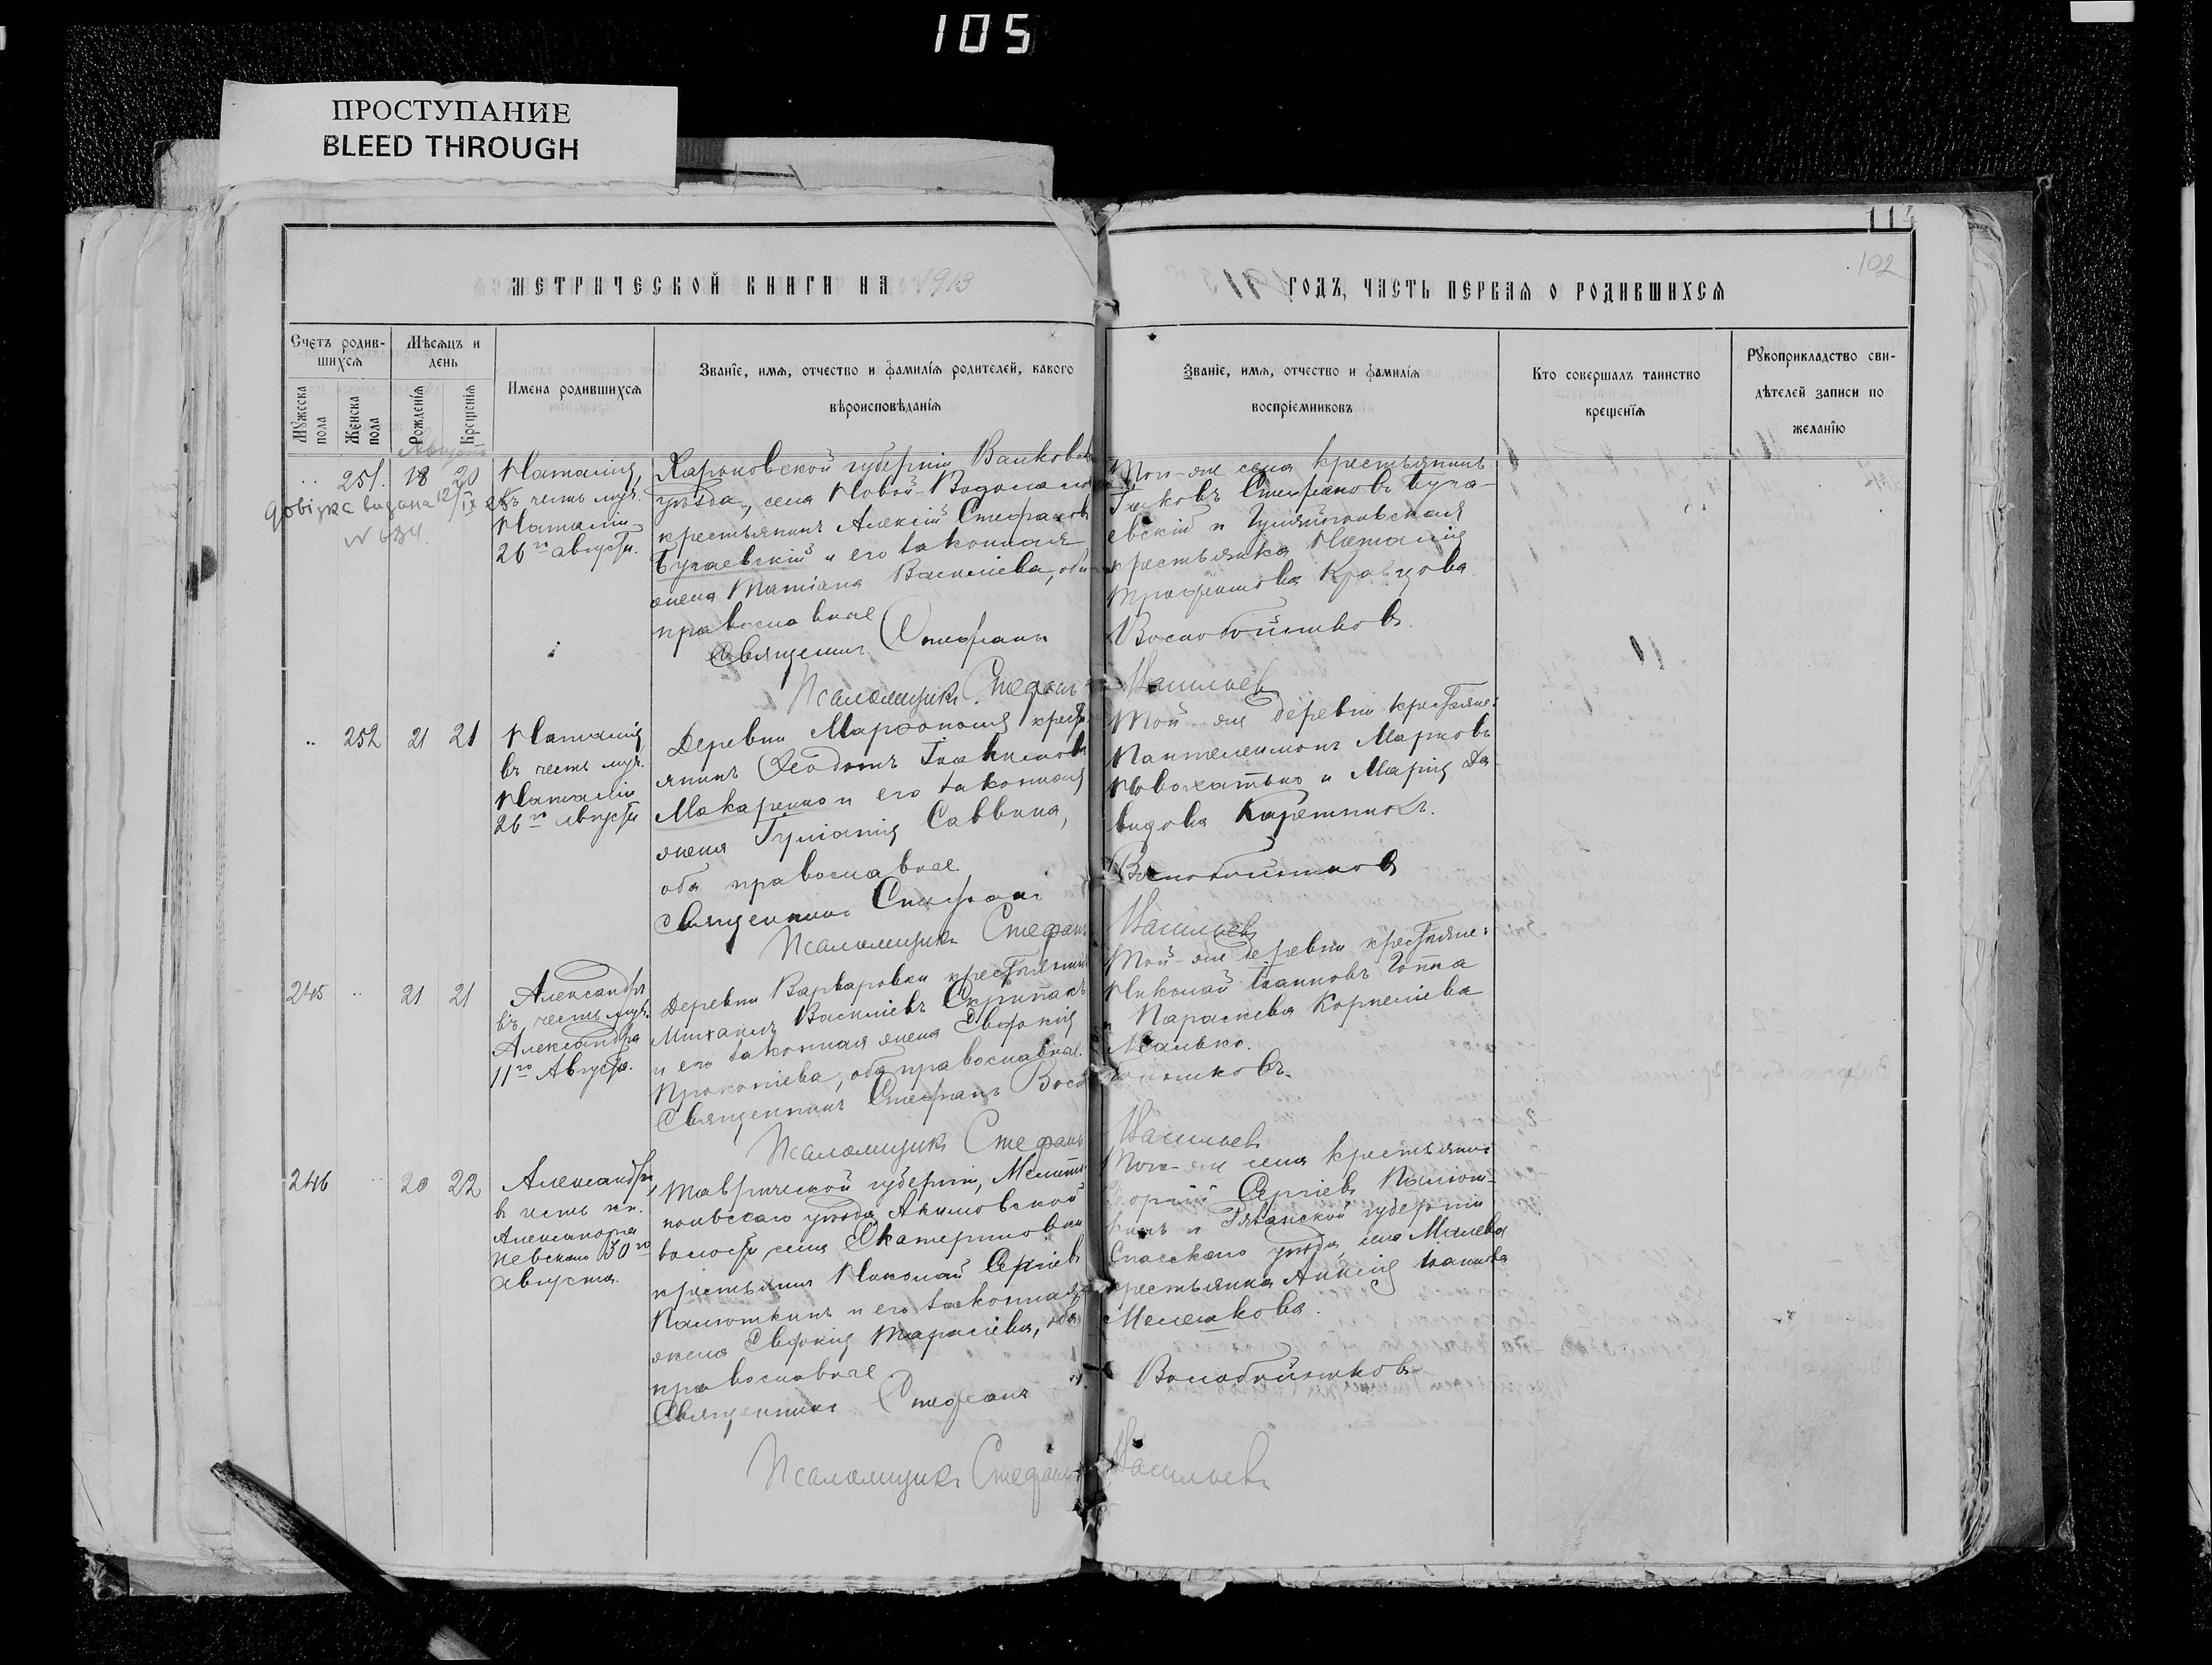 105
ПРОСТУПАНИЕ
BLEED THROUGH
117
102
МЕТРИЧЕСКОЙ КНИГИ НА 1913
ГОДЪ, ЧАСТЬ ПЕРВАЯ О РОДИВШИХСЯ
Счетъ родив-
шихся
Мужеска пола
Женска пола
Мѣсяцъ и
день
Рожденія
Крещенія
Имена родившихся
Званіе, имя, отчество и фамилія родителей, какого
вѣроисповѣданія
Званіе, имя, отчество и фамилія
воспріемниковъ
Кто совершалъ таинство
крещенія
Рукоприкладство сви-
дѣтелей записи по
желанію
Августъ
251. 18 20
довідка видана 12/IX
Наталія,
въ честь муч.
Наталіи
26го августа.
Харьковской губерніи Валковск
уѣзда, села Новой-Водолаги
крестьянинъ Алексій Стефановъ
Бугаевскій и его законная
жена Татіана Василіева, оба
православные
Священникъ Стефанъ
Псаломщикъ Стефанъ
Того-же села крестьянинъ
Іаковъ Стефановъ Буга-
евскій и
крестьянка Наталія
Трофимова Кравцова
Воскобойниковъ.
Васильевъ
252 21 21
Наталія
въ честь муч.
Наталіи
26го августа
Деревни Марфополя крест
янинъ Феодотъ Іоакимовъ
Макаренко и его законная
жена Гуліанія Саввина,
оба православные
Священникъ Стефанъ
Псаломщикъ Стефанъ
Той-же деревни крестьяне:
Пантелеимонъ Марковъ
Новохатько и Марія Да-
видова Каретникъ.
Воскобойниковъ
Васильевъ
245 21 21
Александръ
въ честь муч.
Александра
11го Августа.
Деревни Варваровки крестьянинъ
Михаилъ Васильевъ Скрипакъ
и его законная жена Евфокія
Прокопіева, оба православные.
Священникъ Стефанъ Воско
Псаломщикъ Стефанъ
Той-же деревни крестьяне:
Николай Іоанновъ Гоппа
Параскева Корнеліева
Малько.
бойниковъ.
Васильевъ
246 20 22
Александръ,
въ честь кн.
Александра
Невскаго 30го
августа.
Таврической губерніи, Мелито-
польскаго уѣзда Акимовской
волости, села Екатериновки
крестьянинъ Николай Сергіевъ
Палюткинъ и его законная
жена Евфокія Тарасіева, оба
православные
Священникъ Стефанъ
Псаломщикъ Стефанъ
Того-же села крестьянинъ
Георгій Сергіевъ Палют-
кинъ и Рязанской губерніи
Спасскаго уѣзда, села
крестьянка Анисія Іоаннова
Мелешкова.
Воскобойниковъ
Васильевъ